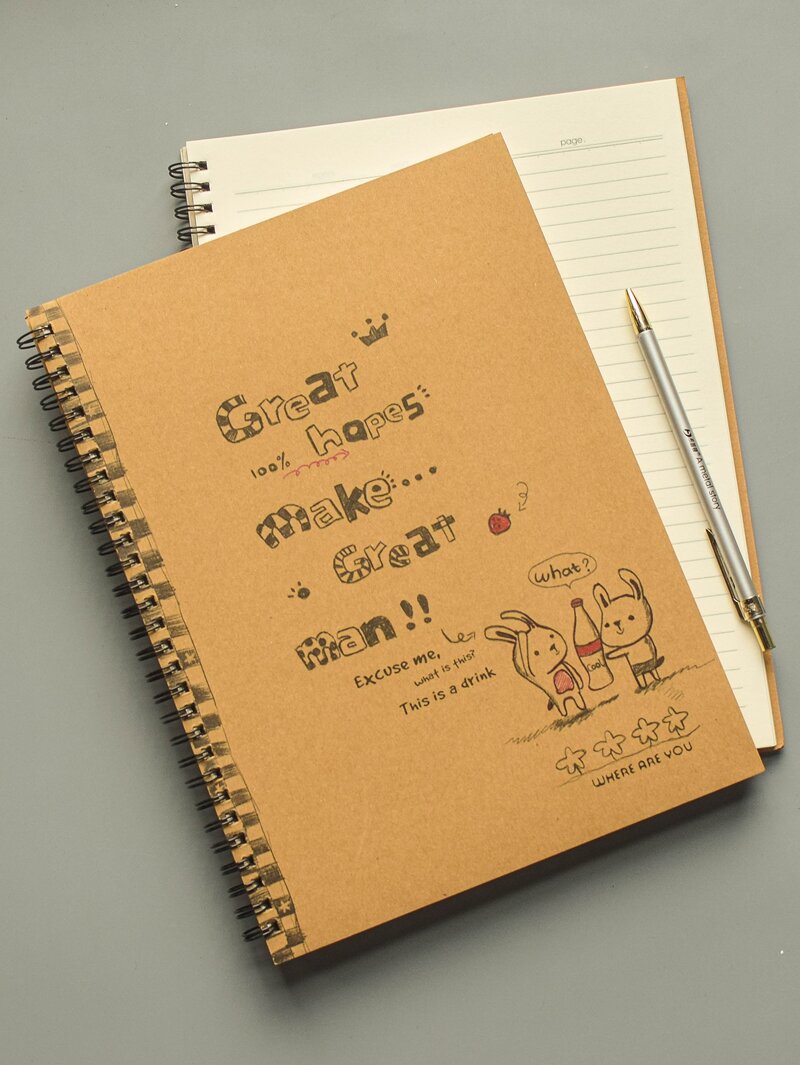 page.
Great
hopes
100%
make...
Great
man!!
what?
Excuse me,
what is this?
This is a drink
Cool
WHERE ARE YOU
A metal story